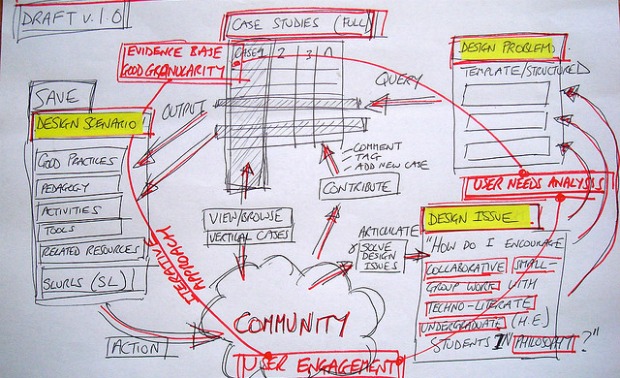 DRAFT V.1.0
CASE STUDIES (FULL)
EVIDENCE BASE
GOOD GRANULARITY
CASE 1 2 3 n
DESIGN PROBLEM
TEMPLATE/STRUCTURED
QUERY
OUTPUT
SAVE
DESIGN SCENARIO
GOOD PRACTICES
PEDAGOGY
ACTIVITIES
TOOLS
RELATED RESOURCES
SLURLS (SL)
COMMENT
TAG
ADD NEW CASE
CONTRIBUTE
VIEW/BROWSE
VERTICAL CASES
ITERATIVE
APPROACH
USER NEEDS ANALYSIS
ARTICULATE
SOLVE
DESIGN
ISSUES
DESIGN ISSUE
"HOW DO I ENCOURAGE
COLLABORATIVE SMALL-
GROUP WORK WITH
TECHNO-LITERATE
UNDERGRADUATE (H.E)
STUDENTS IN PHILOSOPHY?"
ACTION
COMMUNITY
USER ENGAGEMENT